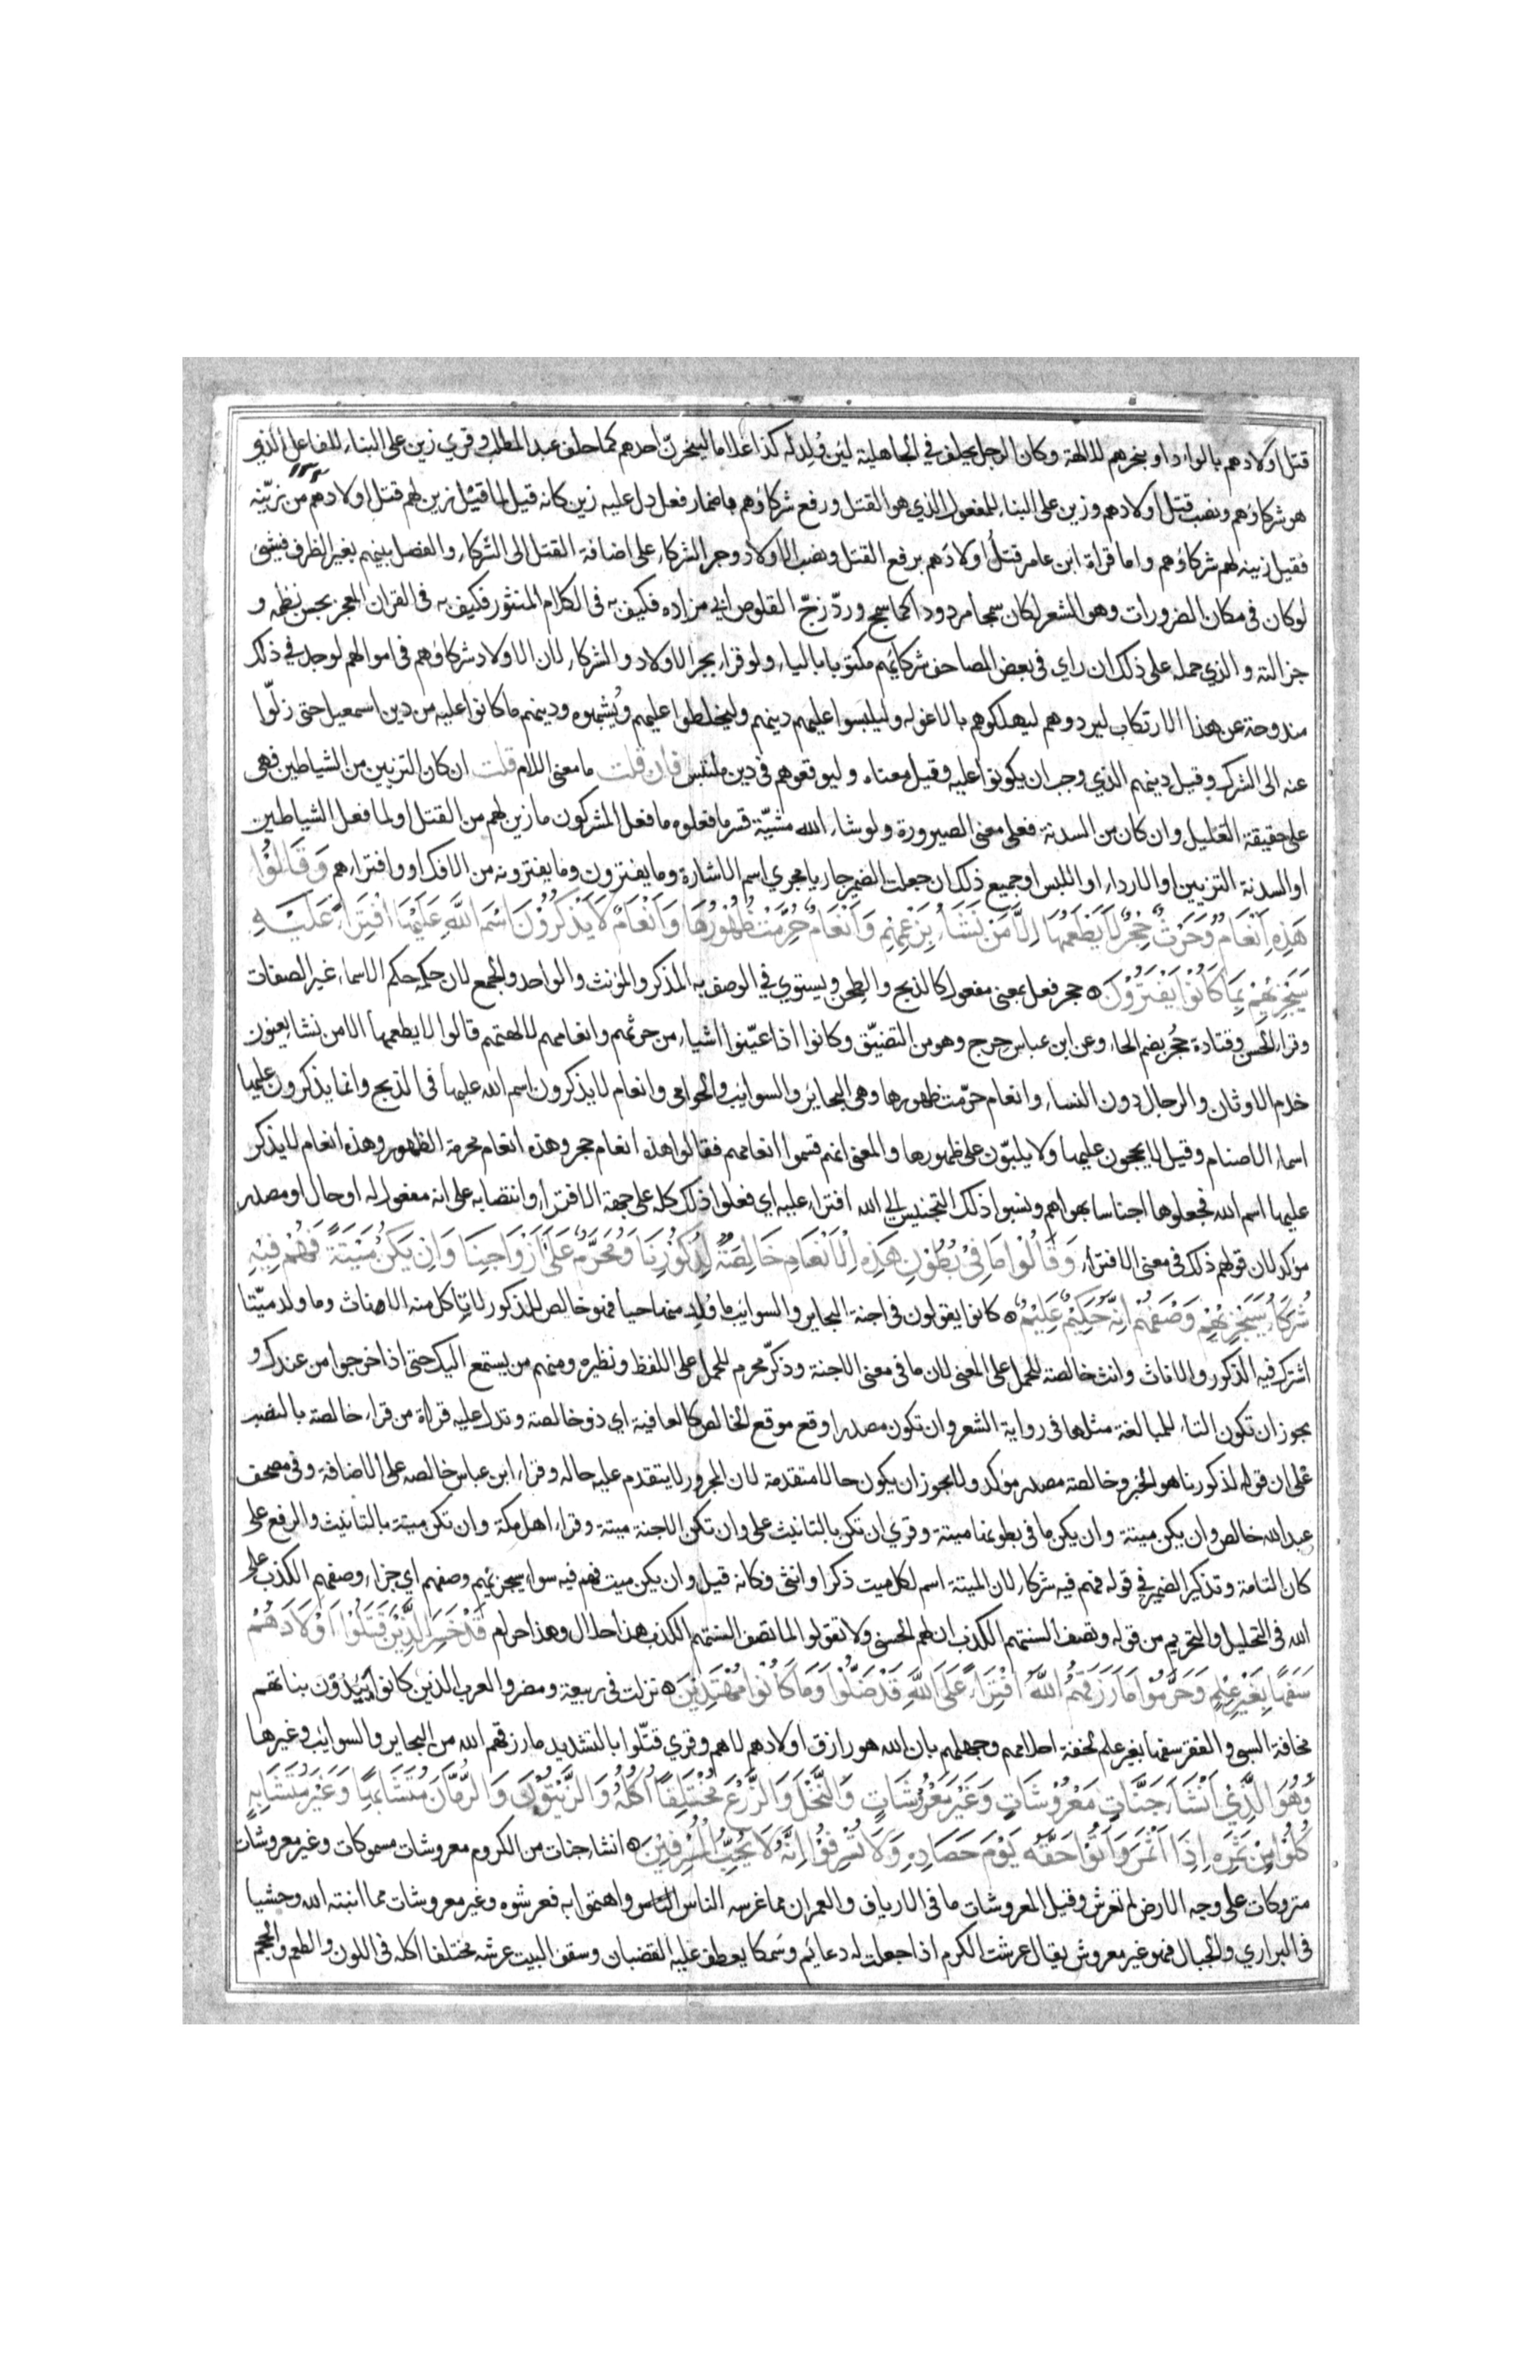 قتل اولادهم بالواد او بنحرهم للالهة وكان الرجل يحلف في الجاهلية لئن وُلِد له كذا غلاما لينحرنّ احدهم كما حلف عبد المطلب وقري زين على البناء للفاعل الذي
هو شركاؤهم ونصب قتل اولادهم وزين على البناء للمفعول الذي هو القتل ورفع شركاؤهم باضمار فعل دل عليه زين كانه قيل لما قيل زين لهم قتل اولادهم من زيّنه
فقيل زينه لهم شركاؤهم واما قراة ابن عامر قتلُ اولادَهم برفع القتل ونصب الاولاد وجر الشركاء على اضافة القتل الى الشركاء والفصل بينهم بغير الظرف فشئ
لو كان فى مكان الضرورات وهو الشعر لكان سمجا مردودا كما سمج وردّ زجّ القلوص ابي مزاده فكيف به فى الكلام المنثور فكيف به فى القران المعجز بحسن نظمه و
جزالته والذي حمله على ذلك ان راى فى بعض المصاحف شركائهم مكتوبا بالياء ولو قراء بجر الاولاد والشركاء لان الاولاد شركاؤهم فى اموالهم لوجد في ذلك
مندوحة عن هذا الارتكاب ليردوهم ليهلكوهم بالاغوله وليلبسوا عليهم دينهم وليخلطوا عليهم ويُشبهوه ودينهم ما كانوا عليه من دين اسمعيل حتى زلّوا
عنه الى الشرك وقيل دينهم الذي وجب ان يكونوا عليه وقيل معناه وليوقعوهم فى دين ملتبس فان قلت ما معنى اللام قلت ان كان التزيين من الشياطين فهى
على حقيقة التعليل وان كان من السدنة فعلى معنى الصيرورة ولو شاء الله مشيّة قسر ما فعلوه ما فعل المشركون ما زين لهم من القتل او لما فعل الشياطين
او السدنة التزيين او الارداء او اللبس او جميع ذلك ان جعلت الضمير جاريا مجري اسم الاشارة وما يفترون وما يفترونه من الافك او وافتراءهم وَقَالُوا
هَذِهِ اَنْعَامٌ وَحَرْثٌ حِجْرٌ لَا يَطْعَمُهَا اِلَّا مَنْ نَشَاءُ بِزَعْمِهِمْ وَاَنْعَامٌ حُرِّمَتْ ظُهُورُهَا وَاَنْعَامٌ لَا يَذْكُرُوْنَ اسْمَ اللَّهِ عَلَيْهَا افْتِرَاءً عَلَيْهِ
سَيَجْزِيْهِمْ بِمَا كَانُوْا يَفْتَرُوْنَ ۝ حجر فعل بمعنى مفعول كالذبح والطِحن ويستوي في الوصف به المذكر والمؤنث والواحد والجمع لان حكمه حكم الاسماء غير الصفات
وقراء الحسن وقتادة حُجر بضم الحاء وعن ابن عباس حِرج وهو من التضيّق وكانوا اذا عيّنوا اشياء من حرثهم وانعامهم لالهتهم قالوا لا يطعمها الا من نشاء يعنون
خدم الاوثان والرجال دون النساء وانعام حرّمت ظهورها وهى البحائر والسوائب والحوامى وانعام لا يذكرون اسم الله عليها فى الذبح وانما يذكرون عليها
اسماء الاصنام وقيل لا يحجون عليها ولا يلبّون على ظهورها والمعنى انهم قسموا انعامهم فقالوا هذه انعام حجر وهذه انعام محرمة الظهور وهذه انعام لا يذكر
عليها اسم الله فجعلوها اجناسا بهواهم ونسبوا ذلك التجنيس الي الله افتراء عليه اي فعلوا ذلك كله على جهة الافتراء وانتصابه على انه مفعول له او حال او مصدر
مؤكد لان قولهم ذلك فى معنى الافتراء وَقَالُوْا مَا فِىْ بُطُوْنِ هَذِهِ الْاَنْعَامِ خَالِصَةٌ لِذُكُوْرِنَا وَمُحَرَّمٌ عَلَى اَزْوَاجِنَا وَاِنْ يَكُنْ مَيْتَةً فَهُمْ فِيْهِ
شُرَكَاءُ سَيَجْزِيْهِمْ وَصْفَهُمْ اِنَّهُ حَكِيْمٌ عَلِيْمٌ ۝ كانوا يقولون فى اجنة البحاير والسوائب ما وُلِد منها حيا فهو خالص للذكور لا تاكل منه الاناث وما ولد ميّتا
اشترك فيه الذكور والاناث وانث خالصة للحمل على المعنى لان ما فى معنى الاجنة وذكّر محرم للحمل على اللفظ ونظيره ومنهم من يستمع اليك حتى اذا خرجوا من عندك و
يجوز ان تكون التاء للمبالغة مثلها فى رواية الشعر وان تكون مصدرا وقع موقع الخالص كالعافية اي ذو خالصة وتدل عليه قراة من قراء خالصة بالنصب
على ان قوله لذكورنا هو الخبر وخالصة مصدر مؤكد ولا يجوز ان يكون حالا متقدمة لان المجرور لا يتقدم عليه حاله وقراء ابن عباس خالصه على الاضافة وفى مصحف
عبد الله خالص وان يكن ميتة وان يكن ما فى بطونها ميتة وقري ان تكن بالتانيث على وان تكن الاجنة ميتة وقراء اهل مكة وان تكن ميتة بالتانيث والرفع على
كان التامة وتذكير الضمير فى قوله فهم فيه شركاء لان الميتة اسم لكل ميت ذكر او انثى فكانه قيل وان يكن ميت فهم فيه سواء سيجزيهم وصفهم اي جزاء وصفهم الكذب على
الله فى التحليل والتحريم من قوله وتصف السنتهم الكذب ان لهم الحسنى ولا تقولوا لما تصف السنتهم الكذب هذا حلال وهذا حرام قَدْ خَسِرَ الَّذِيْنَ قَتَلُوْا اَوْلَادَهُمْ
سَفَهًا بِغَيْرِ عِلْمٍ وَحَرَّمُوْا مَا رَزَقَهُمُ اللَّهُ افْتِرَاءً عَلَى اللَّهِ قَدْ ضَلُّوْا وَمَا كَانُوْا مُهْتَدِيْنَ ۝ نزلت فى ربيعة ومضر والعرب الذين كانوا يَئِدُوْن بناتهم
مخافة السبى والفقر سفها بغير علم لخفة احلامهم وجهلهم بان الله هو رازق اولادهم لا هم وقري قتّلوا بالتشديد ما رزقهم الله من البحاير والسوايب وغيرها
وَهُوَ الَّذِيْ اَنْشَاَ جَنَّاتٍ مَعْرُوْشَاتٍ وَغَيْرَ مَعْرُوْشَاتٍ وَالنَّخْلَ وَالزَّرْعَ مُخْتَلِفًا اُكُلُهُ وَالزَّيْتُوْنَ وَالرُّمَّانَ مُتَشَابِهًا وَغَيْرَ مُتَشَابِهٍ
كُلُوْا مِنْ ثَمَرِهِ اِذَا اَثْمَرَ وَاٰتُوْا حَقَّهُ يَوْمَ حَصَادِهِ وَلَا تُسْرِفُوْا اِنَّهُ لَا يُحِبُّ الْمُسْرِفِيْنَ ۝ انشا جنات من الكروم معروشات مسموكات وغير معروشات
متروكات على وجه الارض لم تعرش وقيل المعروشات ما فى الارياف والعمران مما غرسه الناس الناس واهتموا به فعرشوه وغير معروشات مما انبته الله وحشيا
فى البراري والجبال فهو غير معروش يقال عرشت الكرم اذا جعلت له دعائم وسَمكا يعطف عليه القضبان وسقف البيت عرشه مختلفا اكله فى اللون والطعم والحجم